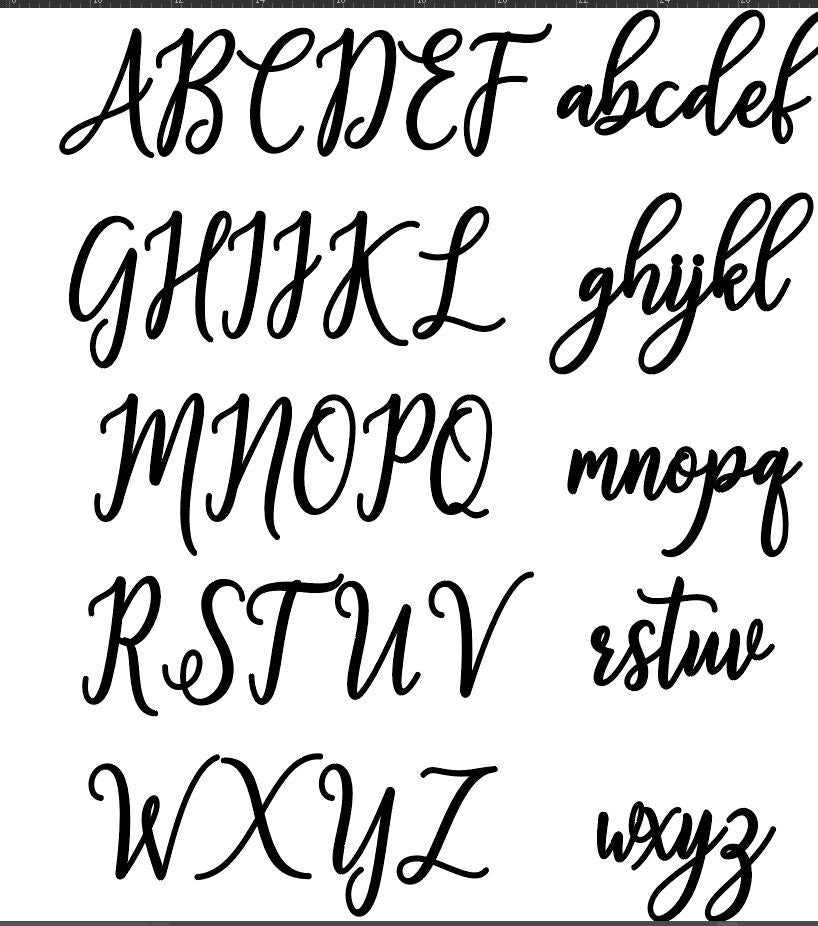 ABCDEF abcdef
GHIJKL ghijkl
MNOPQ mnopq
RSTUV rstuv
WXYZ wxyz